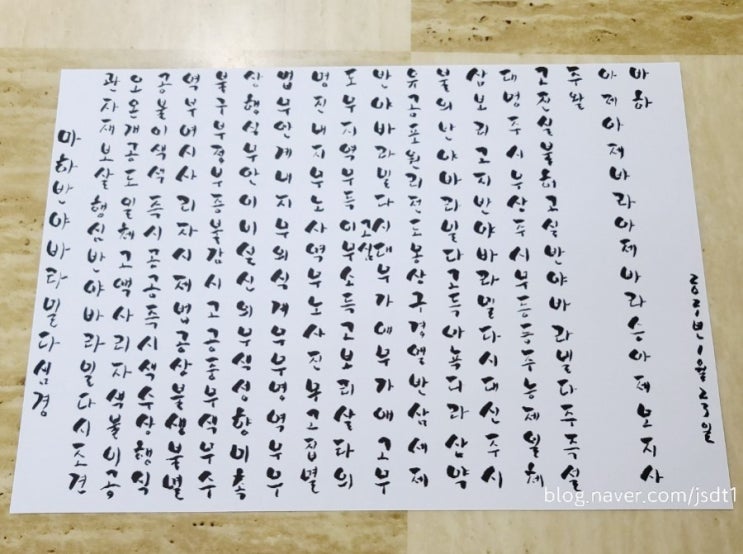 마하반야바라밀다심경
관자재보살행심반야바라밀다시조견
오온개공도일체고액사리자색불이공
공불이색색즉시공공즉시색수상행식
역부여시사리자시제법공상불생불멸
불구부정부증불감시고공중무색무수
상행식무안이비설신의무색성향미촉
법무안계내지무의식계무무명역무무
명진내지무노사역무노사진무고집멸
도무지역무득이무소득고보리살타의
반야바라밀다시대무가애무가애고무
고심
유공포원리전도몽상구경열반삼세제
불의반야바라밀다고득아뇩다라삼약
삼보리고지반야바라밀다시대신주시
대명주시무상주시무등등주능제일체
고진실불허고설반야바라밀다주즉설
주왈
아제아제바라아제바라승아제모지사
바하
2021년 1월 23일
blog.naver.com/jsdt1